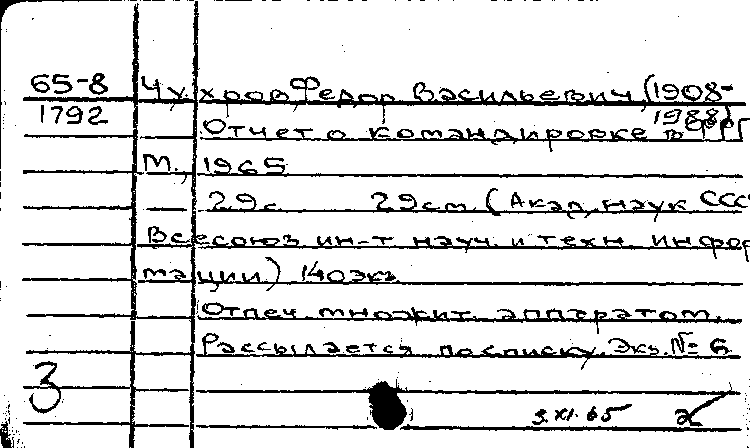 65-8 Чухров, Федор Васильевич, (1908-
1792 1988)
Отчет о командировке в ФРГ
М., 1965
29 с. 29 см. (Акад. наук СССР
Всесоюз. ин-т науч. и техн. инфор
мации) 140 экз.
Отпеч. множит. аппаратом.
Рассылается по списку. Экз. № 6
3
3.XI.65